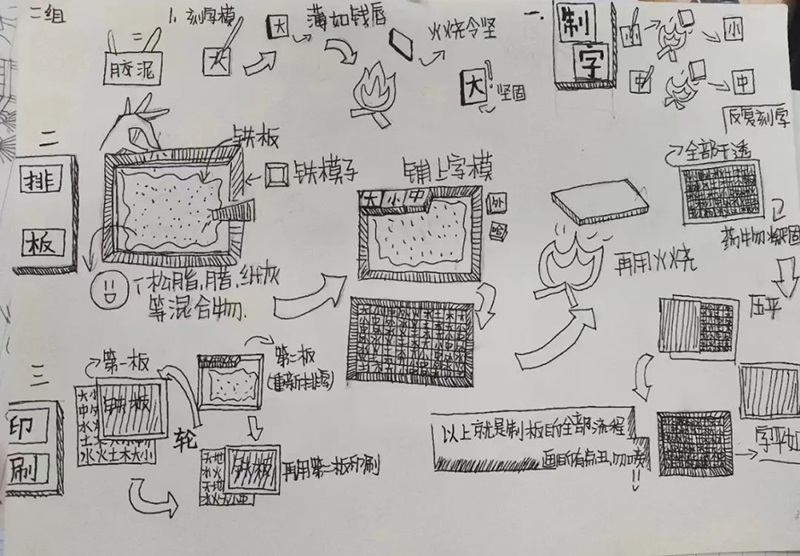 二组
1. 刻字模
胶泥
大
大
薄如钱唇
火烧令坚
大
坚固
一、
制
字
小
小
中
中
反复刻字
二
排
板
铁板
铁模子
松脂,腊,纸灰
等混合物.
铺上字模
大小中
外
哈
再用火烧
全部干透
药物凝固
压平
字平如
三
印
刷
第一板
铁板
大小
水火土木大小
轮
第二板
(重新排字)
铁板
再用第二板印刷
以上就是制板的全部流程
画的有点丑,勿喷!!